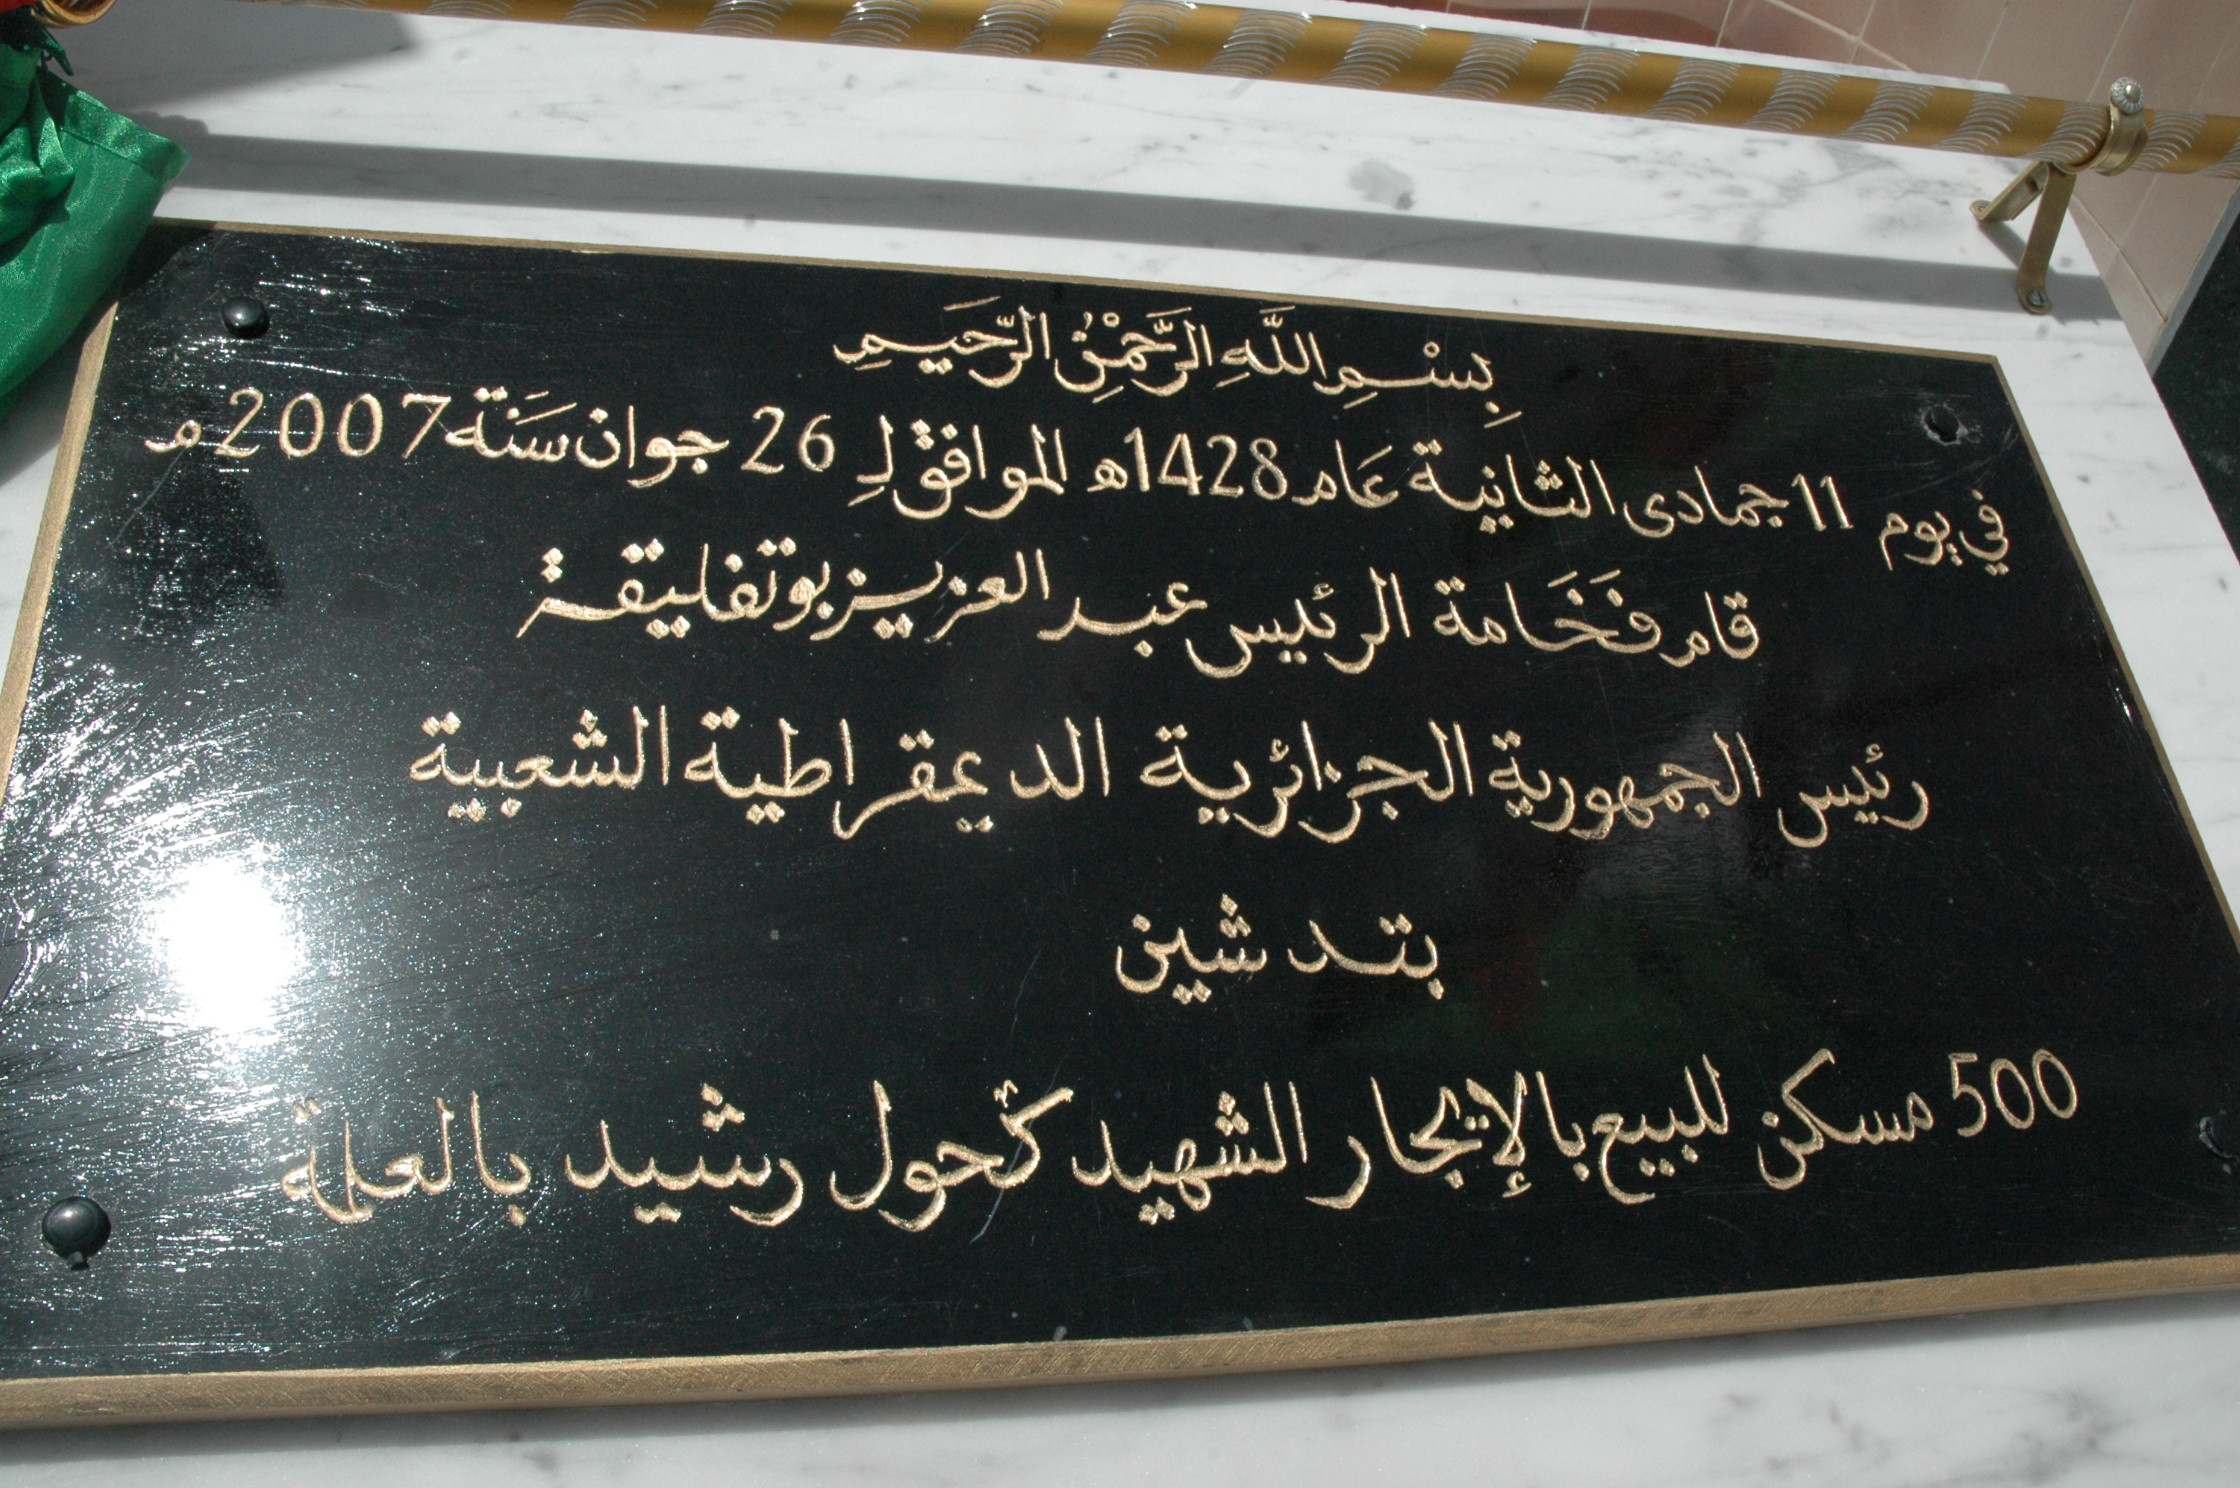 بِسْمِ اللَّهِ الرَّحْمَنِ الرَّحِيمِ
في يوم 11 جمادى الثانية عَام 1428ه الموافق لِ 26 جوان سَنَة 2007م
قام فَخَامة الرئيس عبد العزيز بوتفليقة
رئيس الجمهورية الجزائرية الديمقراطية الشعبية
بتدشين
500 مسكن للبيع بالإيجار الشهيد كحول رشيد بالعلمة